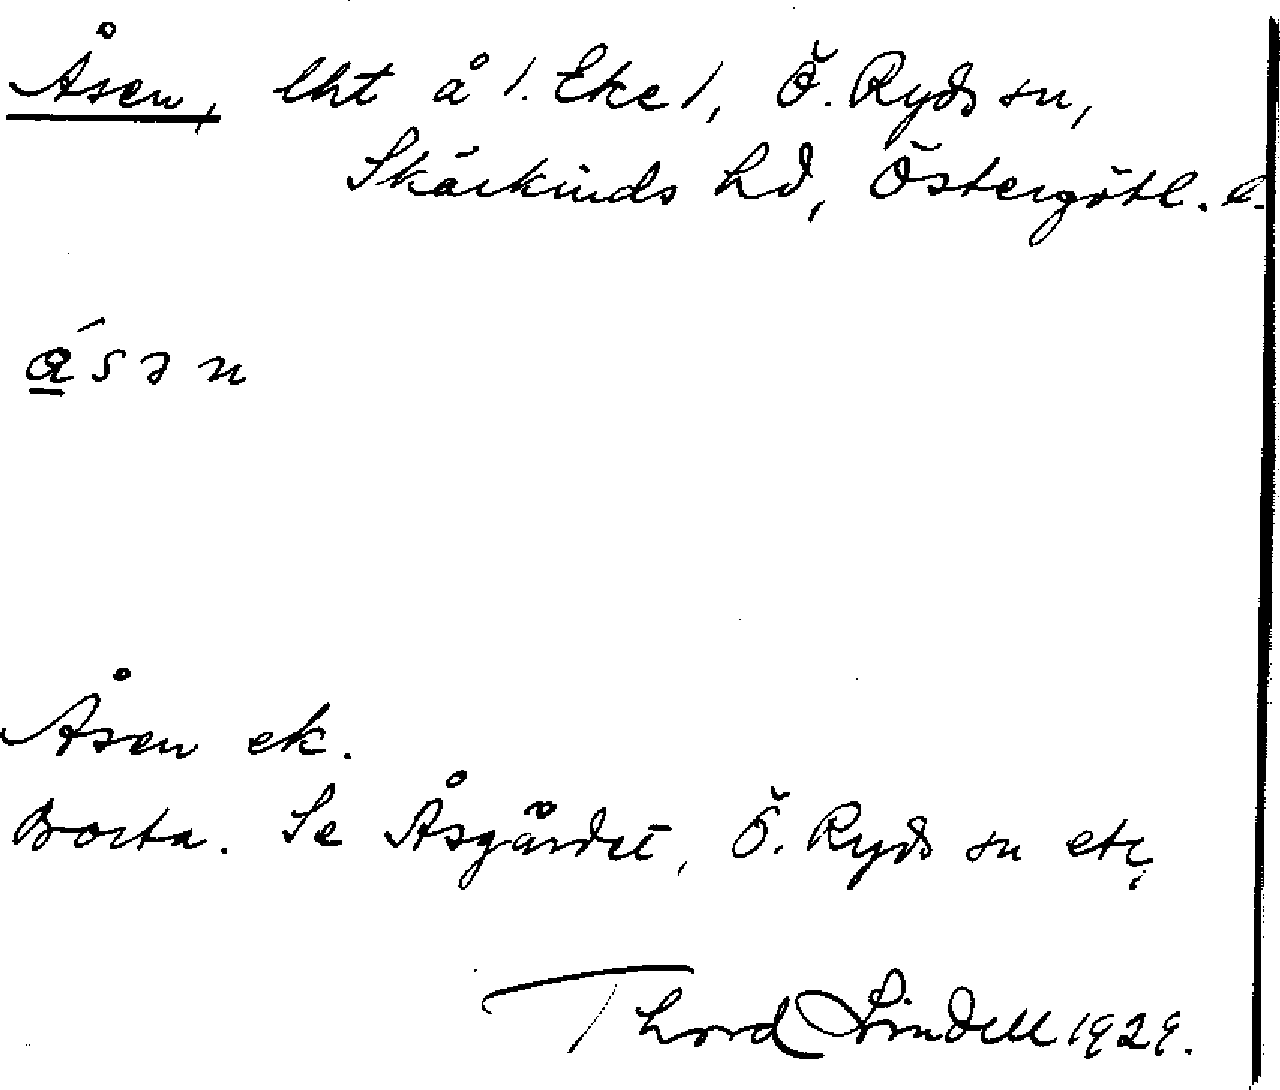 Åsen, lht å 1. Eke 1, Ö. Ryds sn,
Skärkinds hd, Östergötl. l.
ǻsən
Åsen ek.
Borta. Se Åsgärdet, Ö. Ryds sn etc.
Thord Lindell 1929.